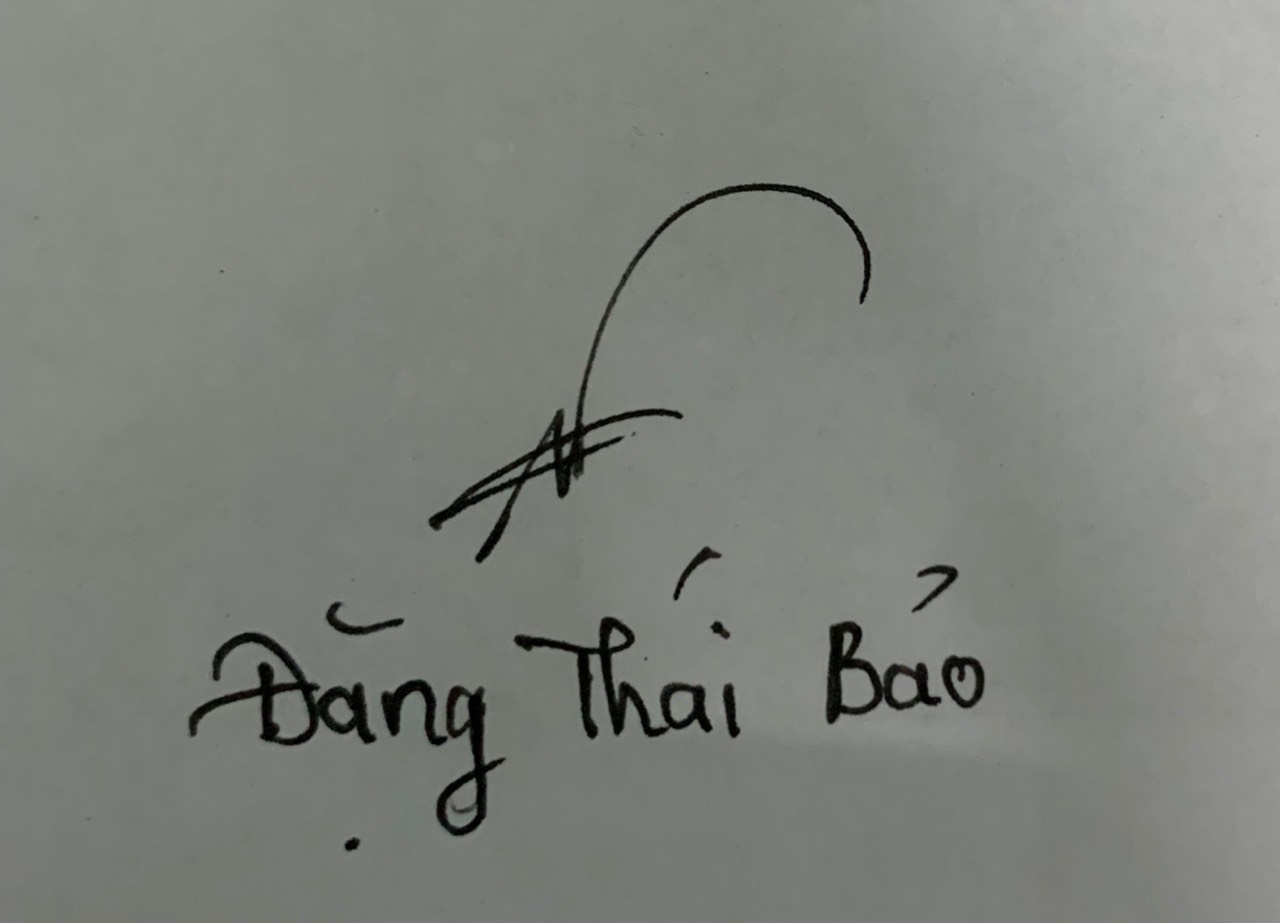 Đặng Thái Bảo